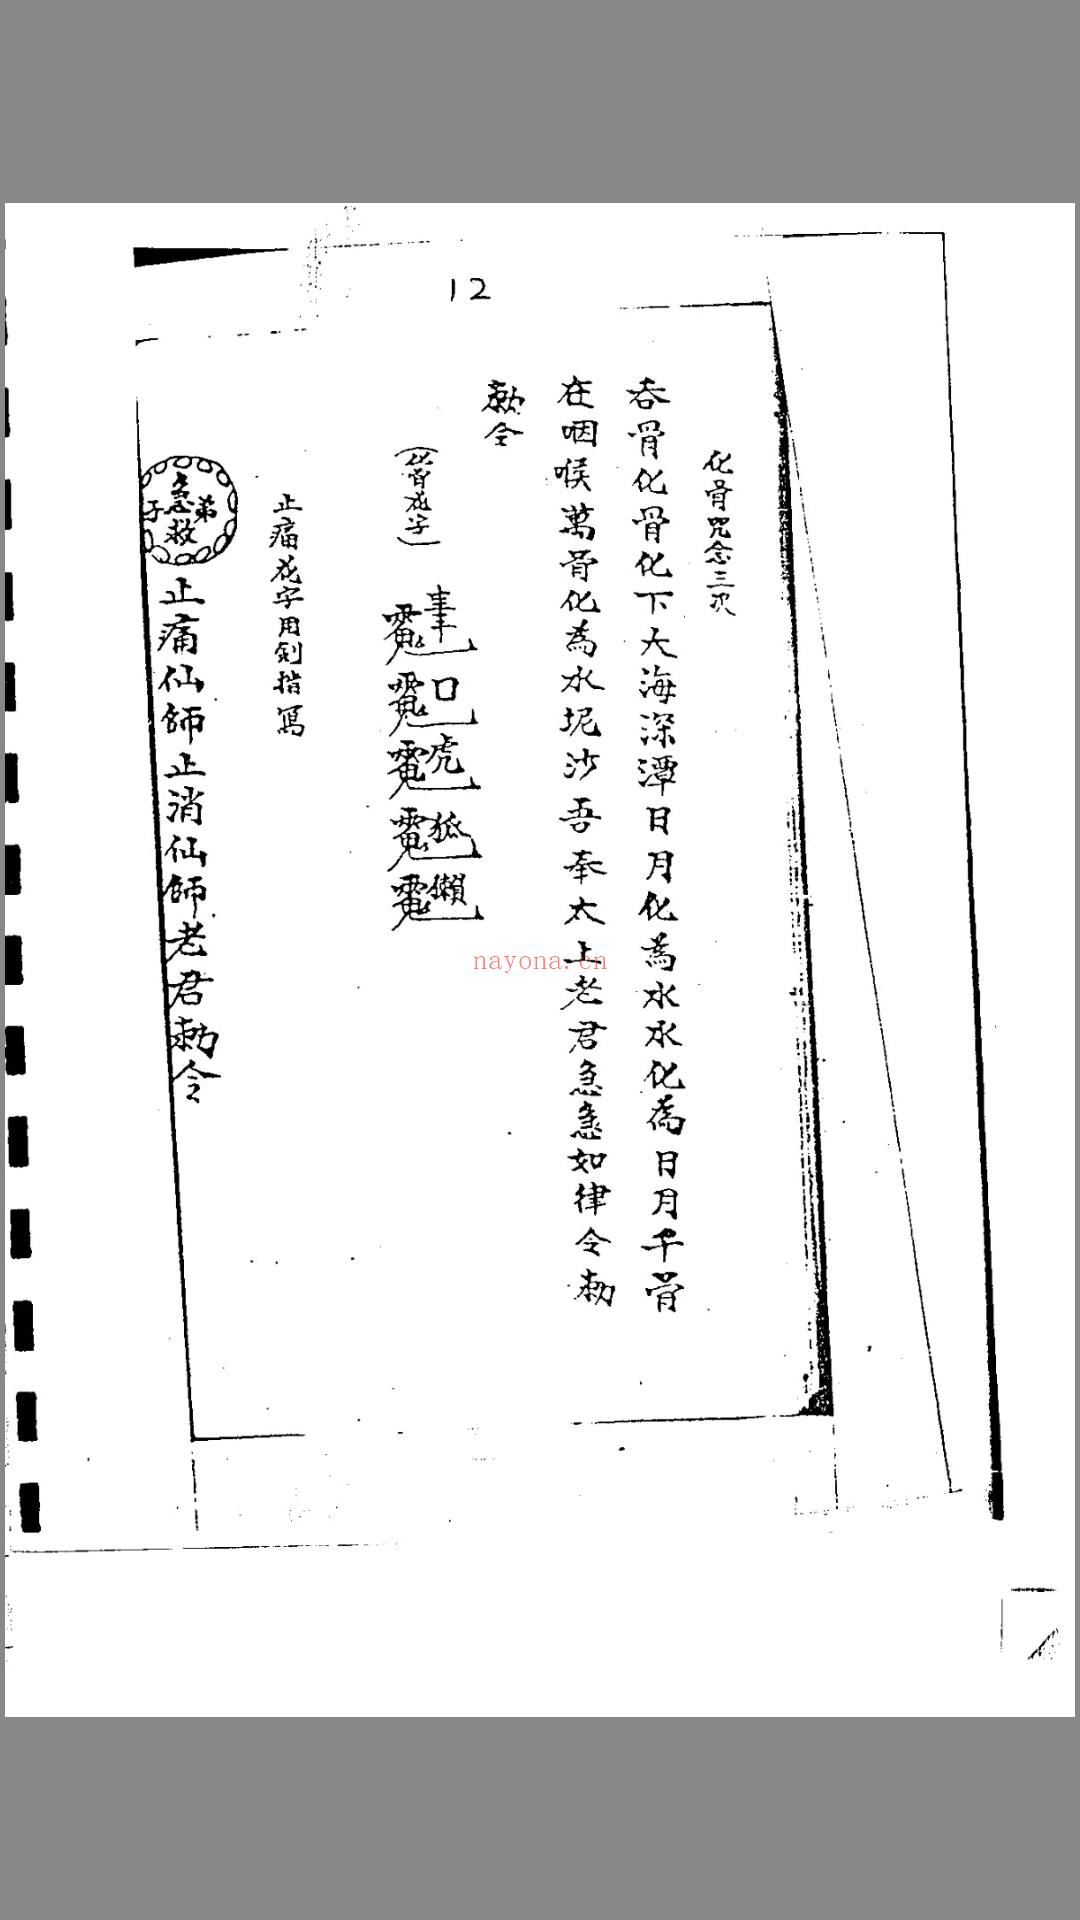 12
化骨咒念三次
吞骨化骨化下大海深潭日月化為水水化為日月千骨
在咽喉萬骨化為水坭沙吾奉太上老君急急如律令勅
勅令
(化骨花字)
口虎狐獺
止痛花字用剑指寫
弟子急救
止痛仙師止消仙師老君勅令
nayona.cn